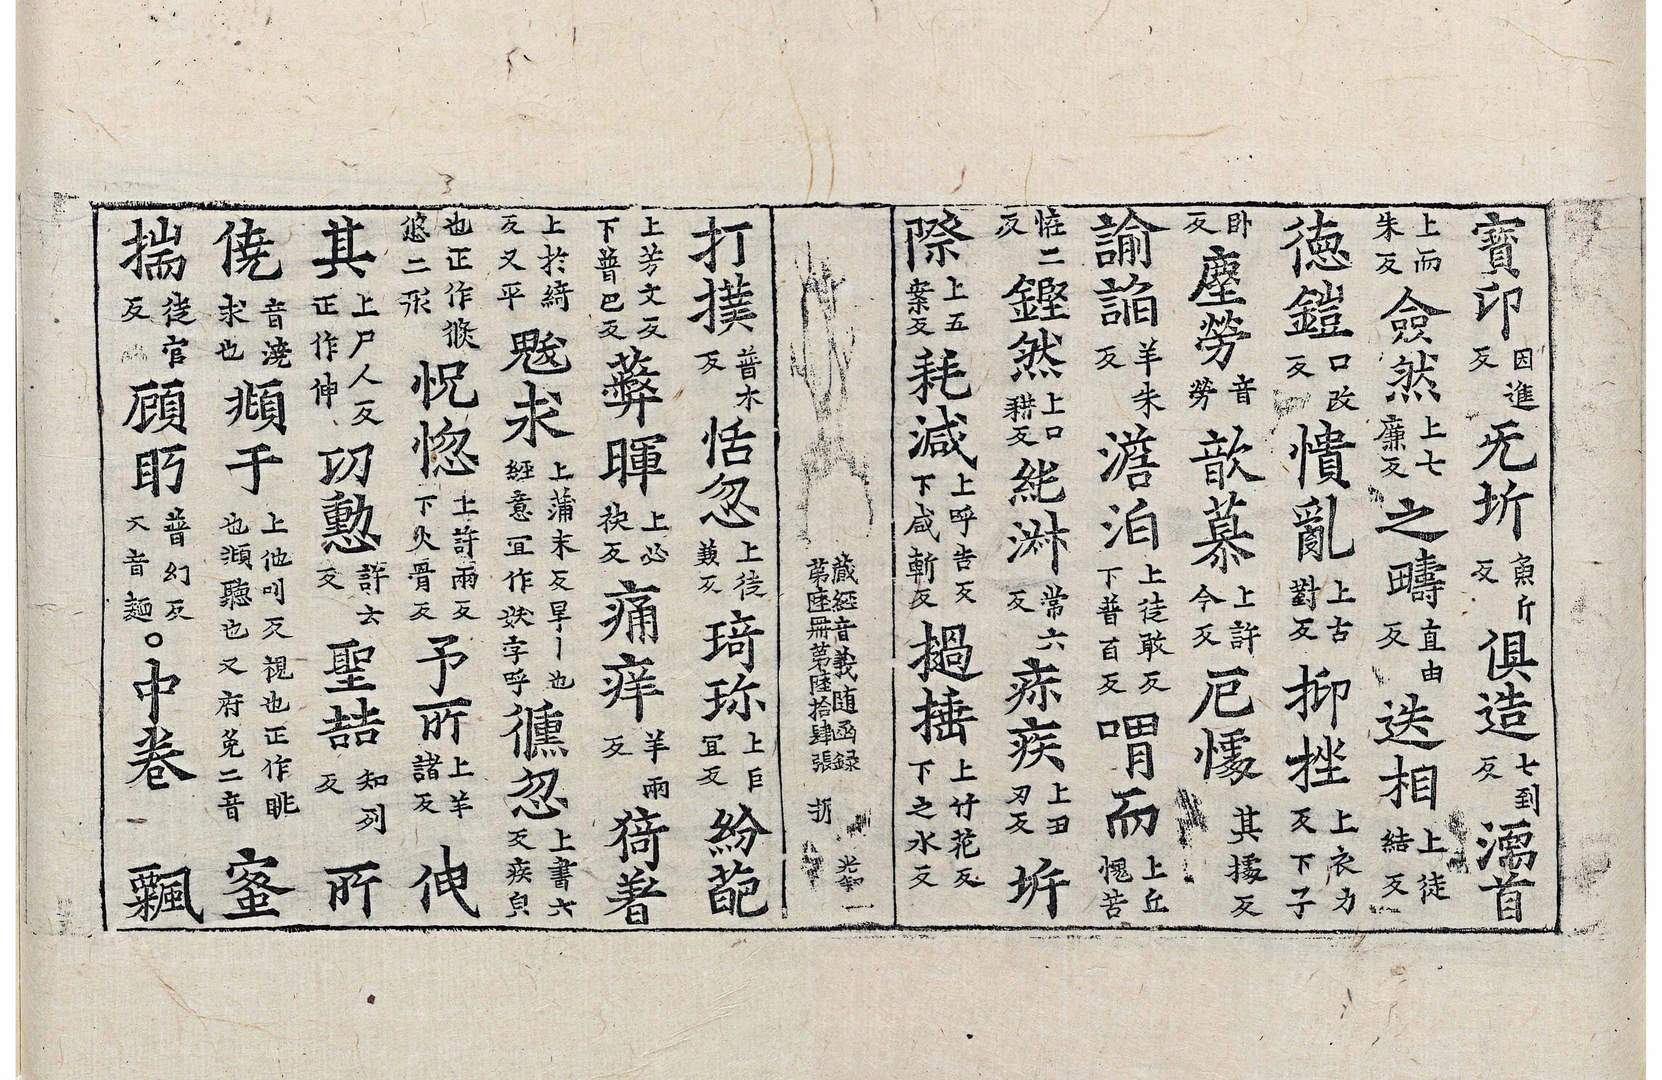 寳印因進反无圻魚斤反俱造七到反濡首
上而朱反僉然上七廉反之疇直由反迭相上徒結反
德鎧口改反憒亂上古對反抑挫上衣力反下子
卧反塵勞音勞歆慕上許今反戹懅其據反
諭諂羊朱反澹泊上徒敢反下普百反喟而上丘愧苦
恠二反鏗然上口耕反純淋常六反疢疾上丑刃反圻
際上五案反耗減上呼告反下咸斬反撾捶上竹花反下之水反
藏經音義随函録
第陸冊第陸拾肆張
打撲普木反恬忽上徒兼反琦珎上巨宜反紛葩
上芳文反下普巴反蔽暉上必袂反痛痒羊兩反猗著
上於綺反又平魃求上蒲末反旱丨也經意冝作妖字呼儵忽上書六反疾皃
也正作倏悠二形怳惚上許兩反下火骨反予所上羊諸反伸
其上尸人反正作伸㓛勲許云反聖喆知列反所
僥音澆求也頫于上他吊反視也正作眺也頫聽也又府免二音蜜
揣徒官反顧眄普幻反又音麵○中卷飄